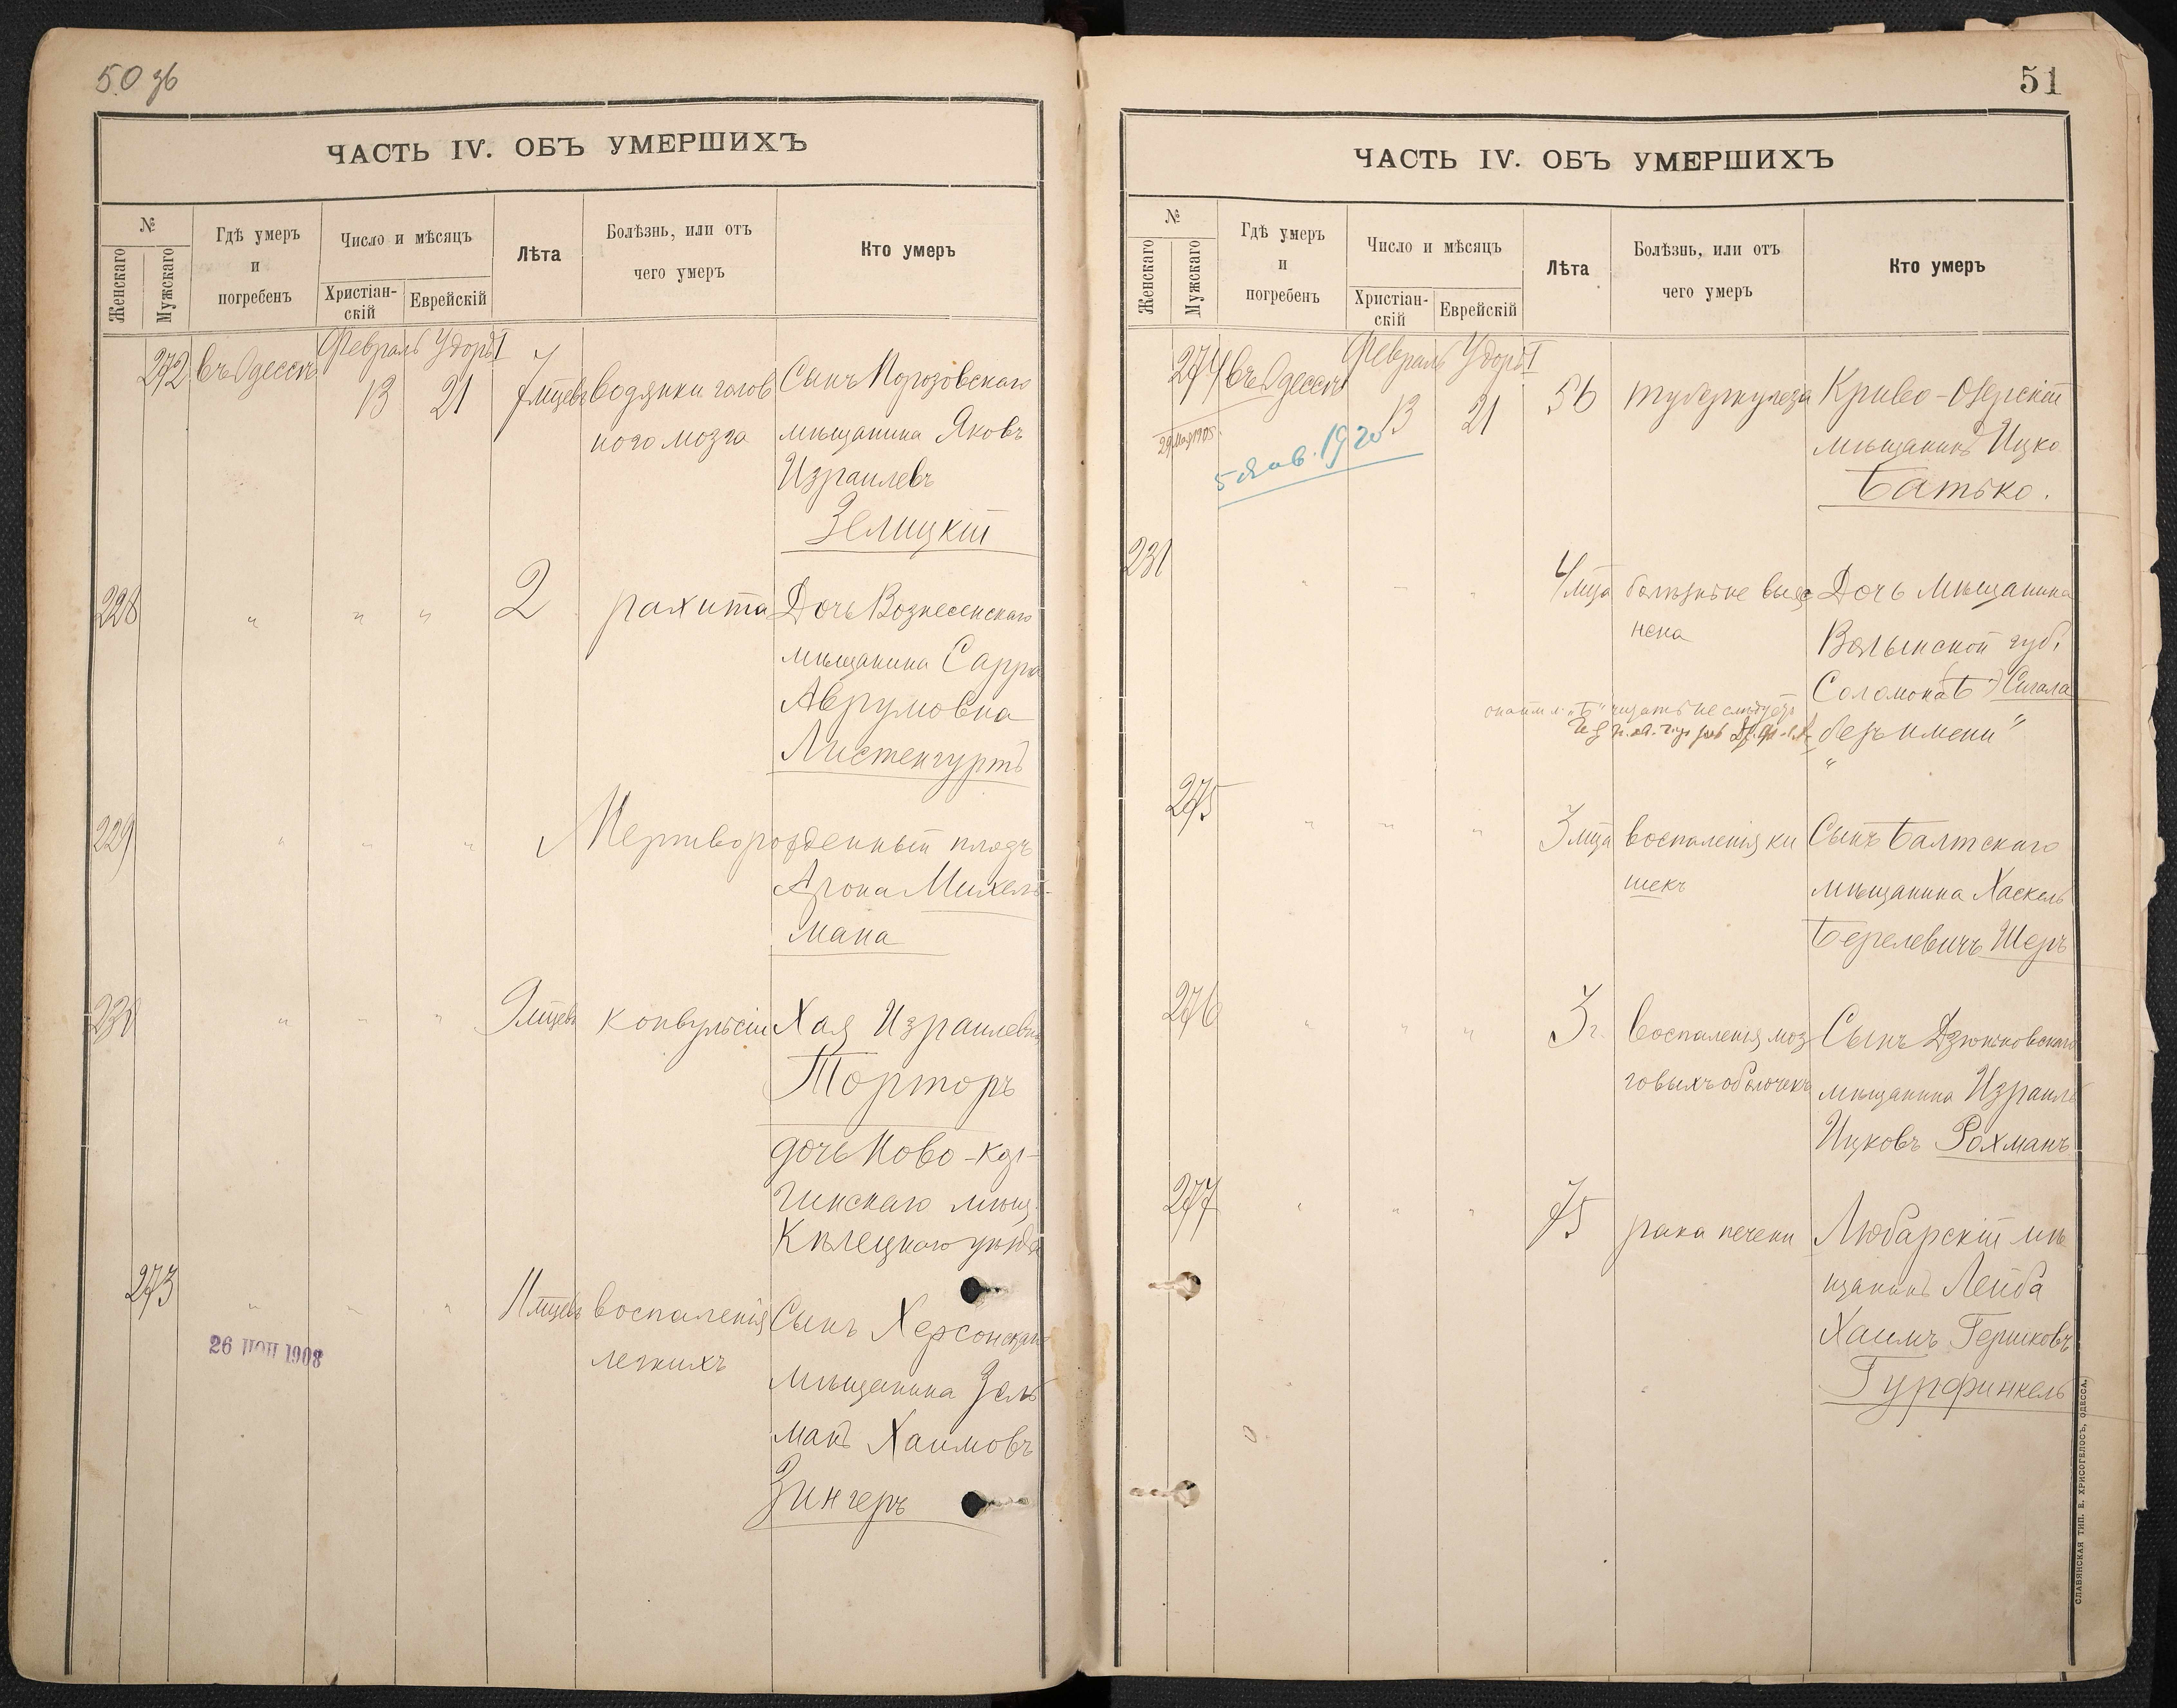 50 зб
ЧАСТЬ IV. ОБЪ УМЕРШИХЪ
№
Женскаго
Мужскаго
Гдѣ умеръ
и
погребенъ
Число и мѣсяцъ
Христіан-
скій
Еврейскій
Лѣта
Болѣзнь, или отъ
чего умеръ
Кто умеръ
Февраль Удоръ I
272 въ Одессѣ 13 21 7 мцевъ водянки голов Сынъ
ного мозга мѣщанина Яковъ
Израилевъ
Зелицкій
228 " " " 2 рахита Дочь Вознесенскаго
мѣщанина Сарра
Аврумовна
Листенгуртъ
229 " " " Мертворожденный плодъ
Арона Михель-
мана
230 " " " 9 мцевъ конвульсіи Хая Израилевна
Торторъ
дочь Ново-
мѣщ.
Кѣлецкаго уѣзда
273 " " " 11 мцевъ воспаленія Сынъ Херсонскаго
легкихъ мѣщанина Зель
манъ Хаимовъ
Зингеръ
26 1908
51
ЧАСТЬ IV. ОБЪ УМЕРШИХЪ
№
Женскаго
Мужскаго
Гдѣ умеръ
и
погребенъ
Число и мѣсяцъ
Христіан-
скій
Еврейскій
Лѣта
Болѣзнь, или отъ
чего умеръ
Кто умеръ
Февраль Удоръ I
274 въ Одессѣ 13 21 56 туберкулеза Криво-Озерскій
мѣщанинъ Ицко
Батько.
29 мая 1905
5 Янв. 1920
231 " " " 4 мца болѣзнь не выяс Дочь мѣщанина
нена Волынской губ.
Соломона (Б.) Сигала
"Б" читать не слѣдуетъ
безъ имени"
275 " " " 3 мца воспаленія ки Сынъ Балтскаго
шекъ мѣщанина Хаскель
Берелевичъ Шеръ
276 " " " 3 г. воспаленія моз Сынъ Дзюньковскаго
говыхъ оболочекъ мѣщанина Израиль
Ицковъ Рохманъ
277 " " " 75 рака печени Любарскій мѣ
щанинъ Лейба
Хаимъ Гершковъ
Гурфинкель
СЛАВЯНСКАЯ ТИП. Е. ХРИСОГЕЛОСЪ, ОДЕССА.